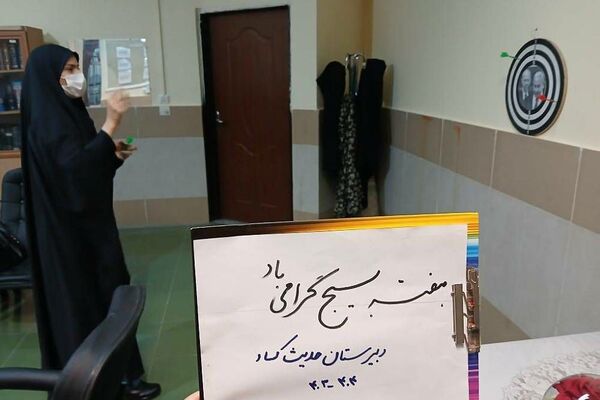 هفته بسیج گرامی باد
دبیرستان حدیث کساء
۴۰۳-۴۰۴